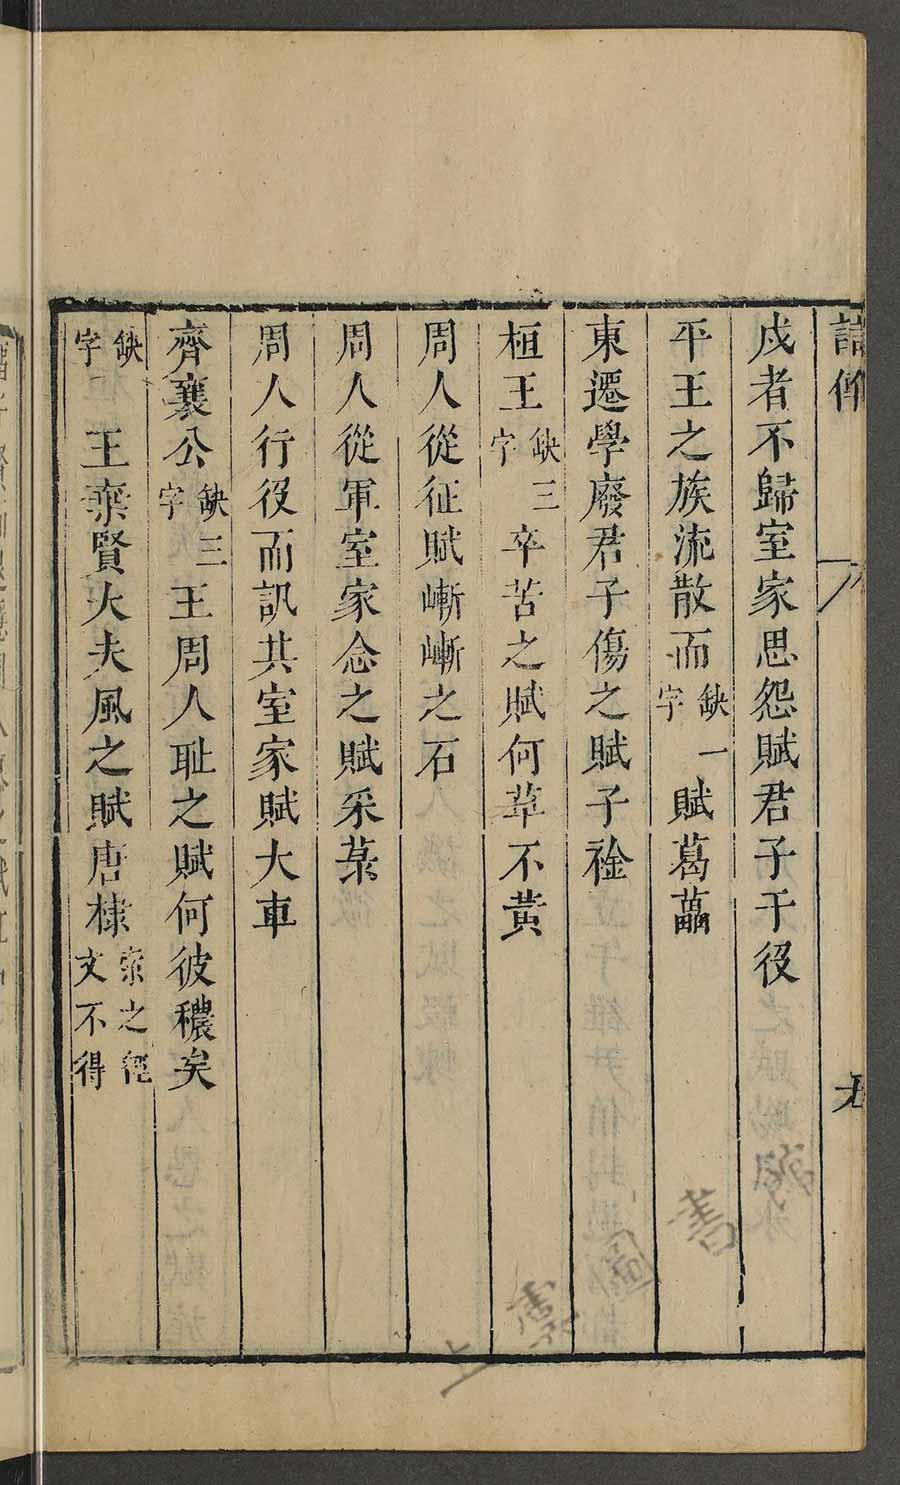 詩傳
九
戍者不歸室家思怨賦君子于役
平王之族流散而缺一字賦葛藟
東遷學廢君子傷之賦子衿
桓王缺三字卒苦之賦何草不黃
周人從征賦嶄嶄之石
周人從軍室家念之賦采菉
周人行役而訊其室家賦大車
齊襄公缺三字王周人耻之賦何彼穠矣
缺字王棄賢大夫風之賦唐棣索之經文不得